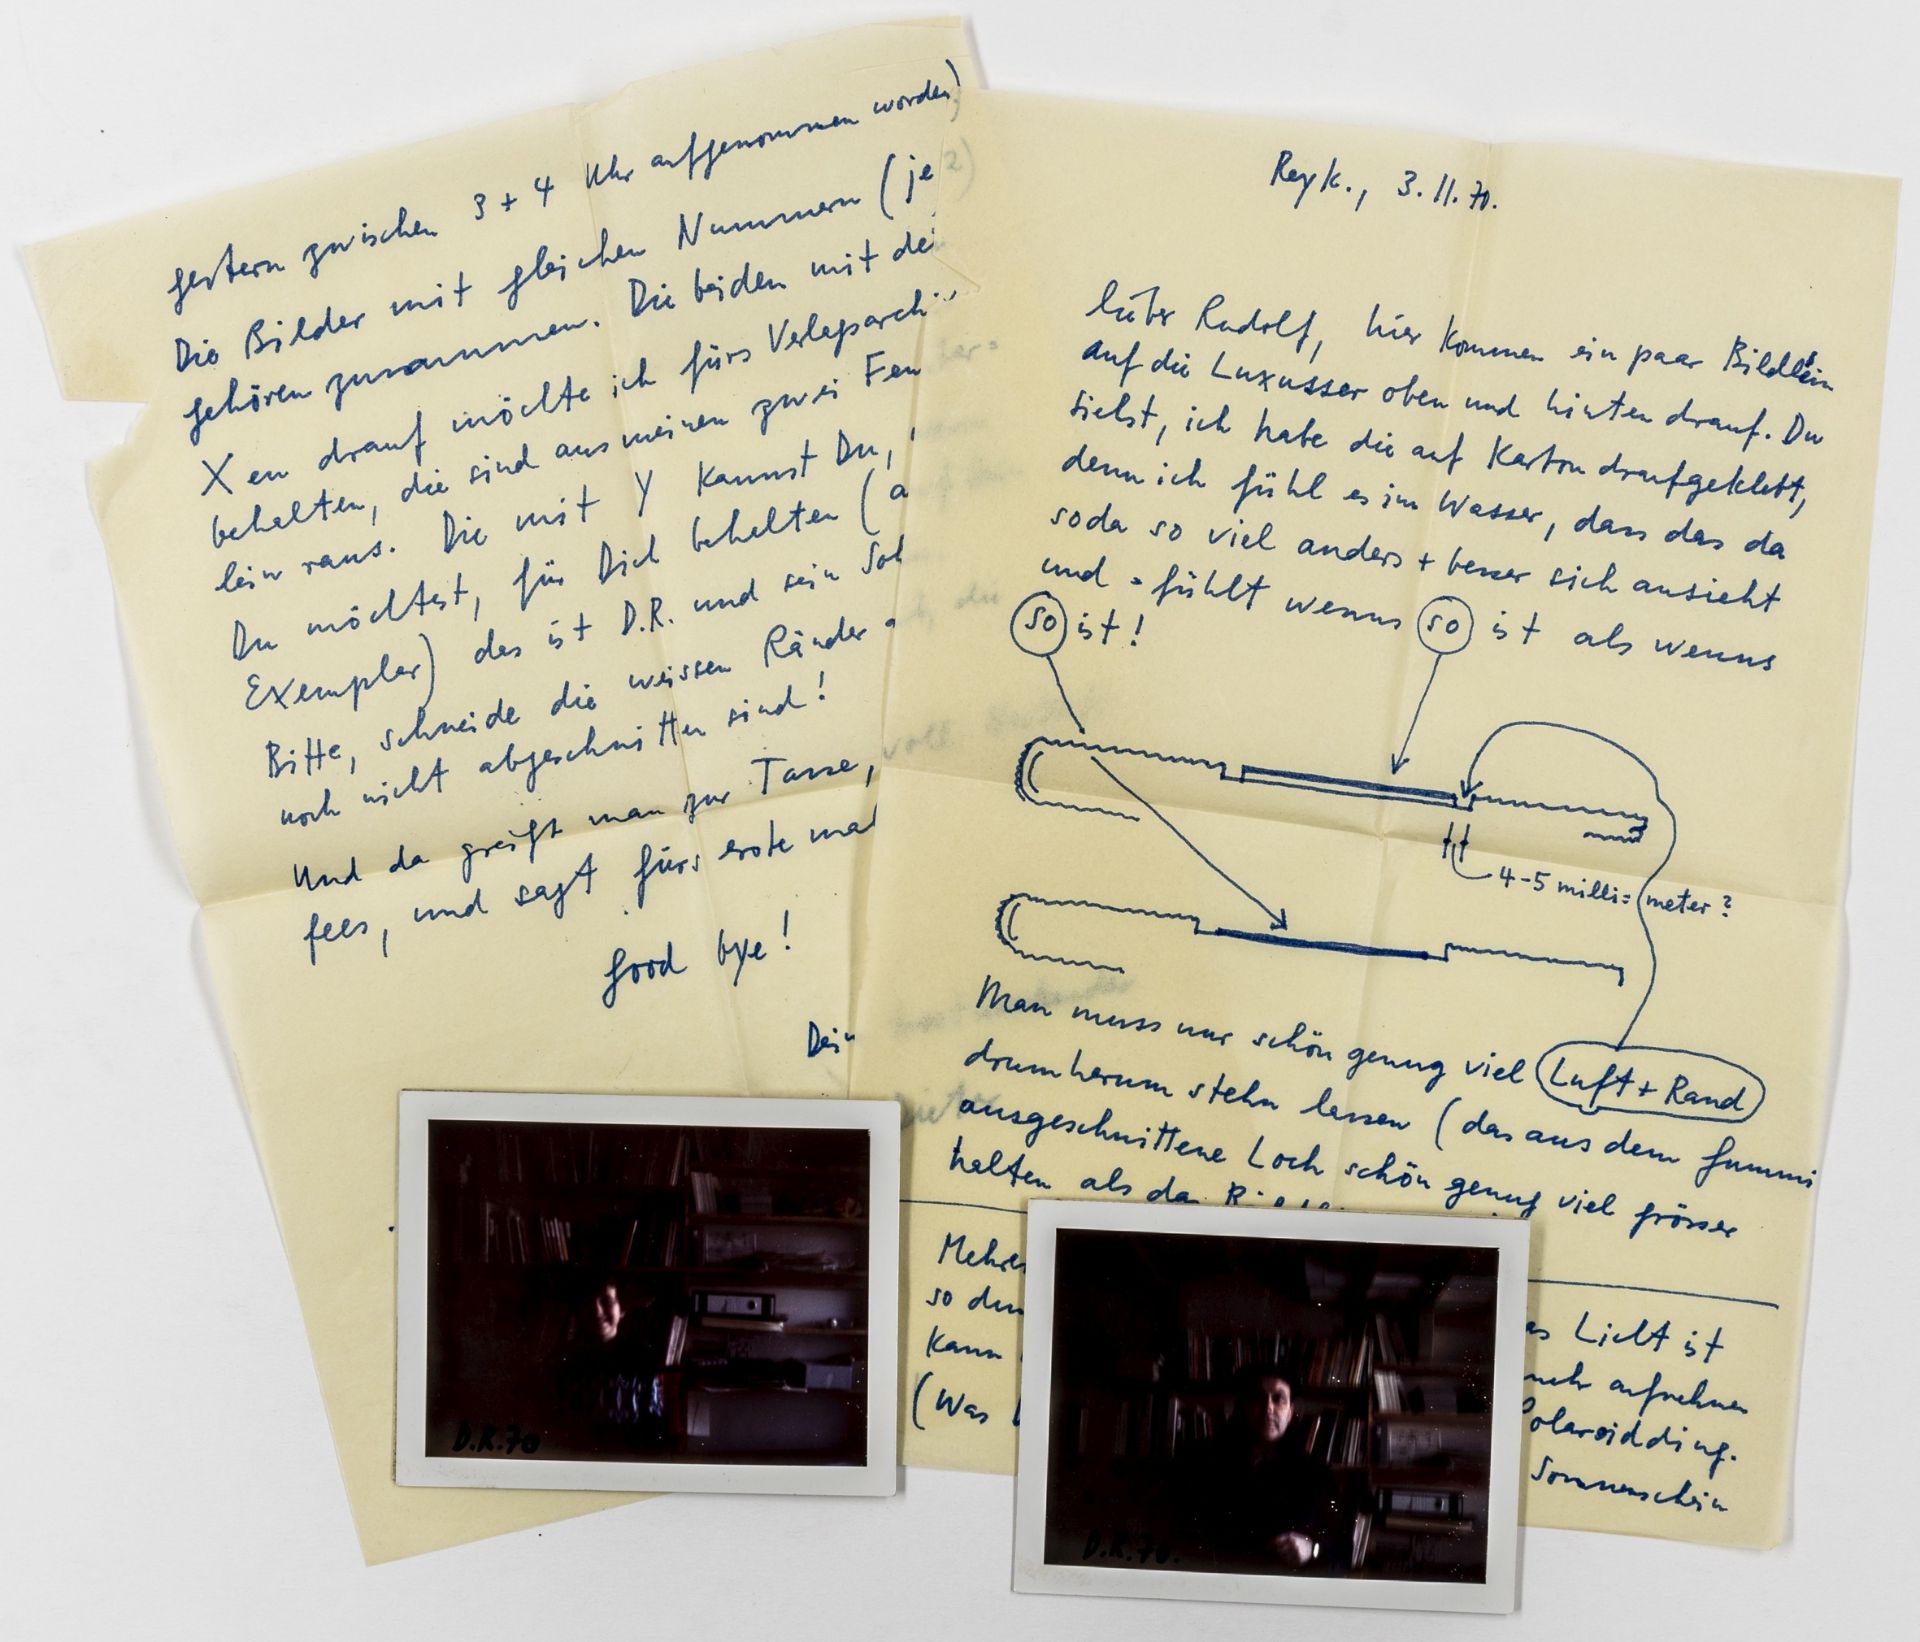 Reyk., 3.11.70.
lieber Rudolf, hier kommen ein paar Bildlein
auf die Luxusser oben und hinten drauf. Du
siehst, ich habe die auf Karton draufgeklebt,
denn ich fühl es im Wasser, dass das da
soda so viel anders + besser sich ansieht
und = fühlt wenns so ist als wenns
so ist!
4-5 milli= meter?
Man muss nur schön genug viel Luft + Rand
drumherum stehn lassen (das aus dem Gummi
ausgeschnittene Loch schön genug viel grösser
halten als da
Mehr
so dun as Licht ist
kann mehr aufnehmen
(Was Polaroidding.
Sonnenschein
gestern zwischen 3 + 4 Uhr aufgenommen worden)
Die Bilder mit gleichen Nummern (je 2)
gehören zusammen. Die beiden mit de
X en drauf möchte ich fürs Verlagsarchi
behalten, die sind aus meinen zwei Fen ter=
lein raus. Die mit Y kannst Du,
Du möchtest, für Dich behalten (a
Exemplar) das ist D.R. und sein Soh
Bitte, schneide die weissen Ränder
noch nicht abgeschnitten sind!
Und da greift man zur Tasse, voll
fees, und sagt fürs erste mal
good bye!
Dein
D.R.70
D.R.70.